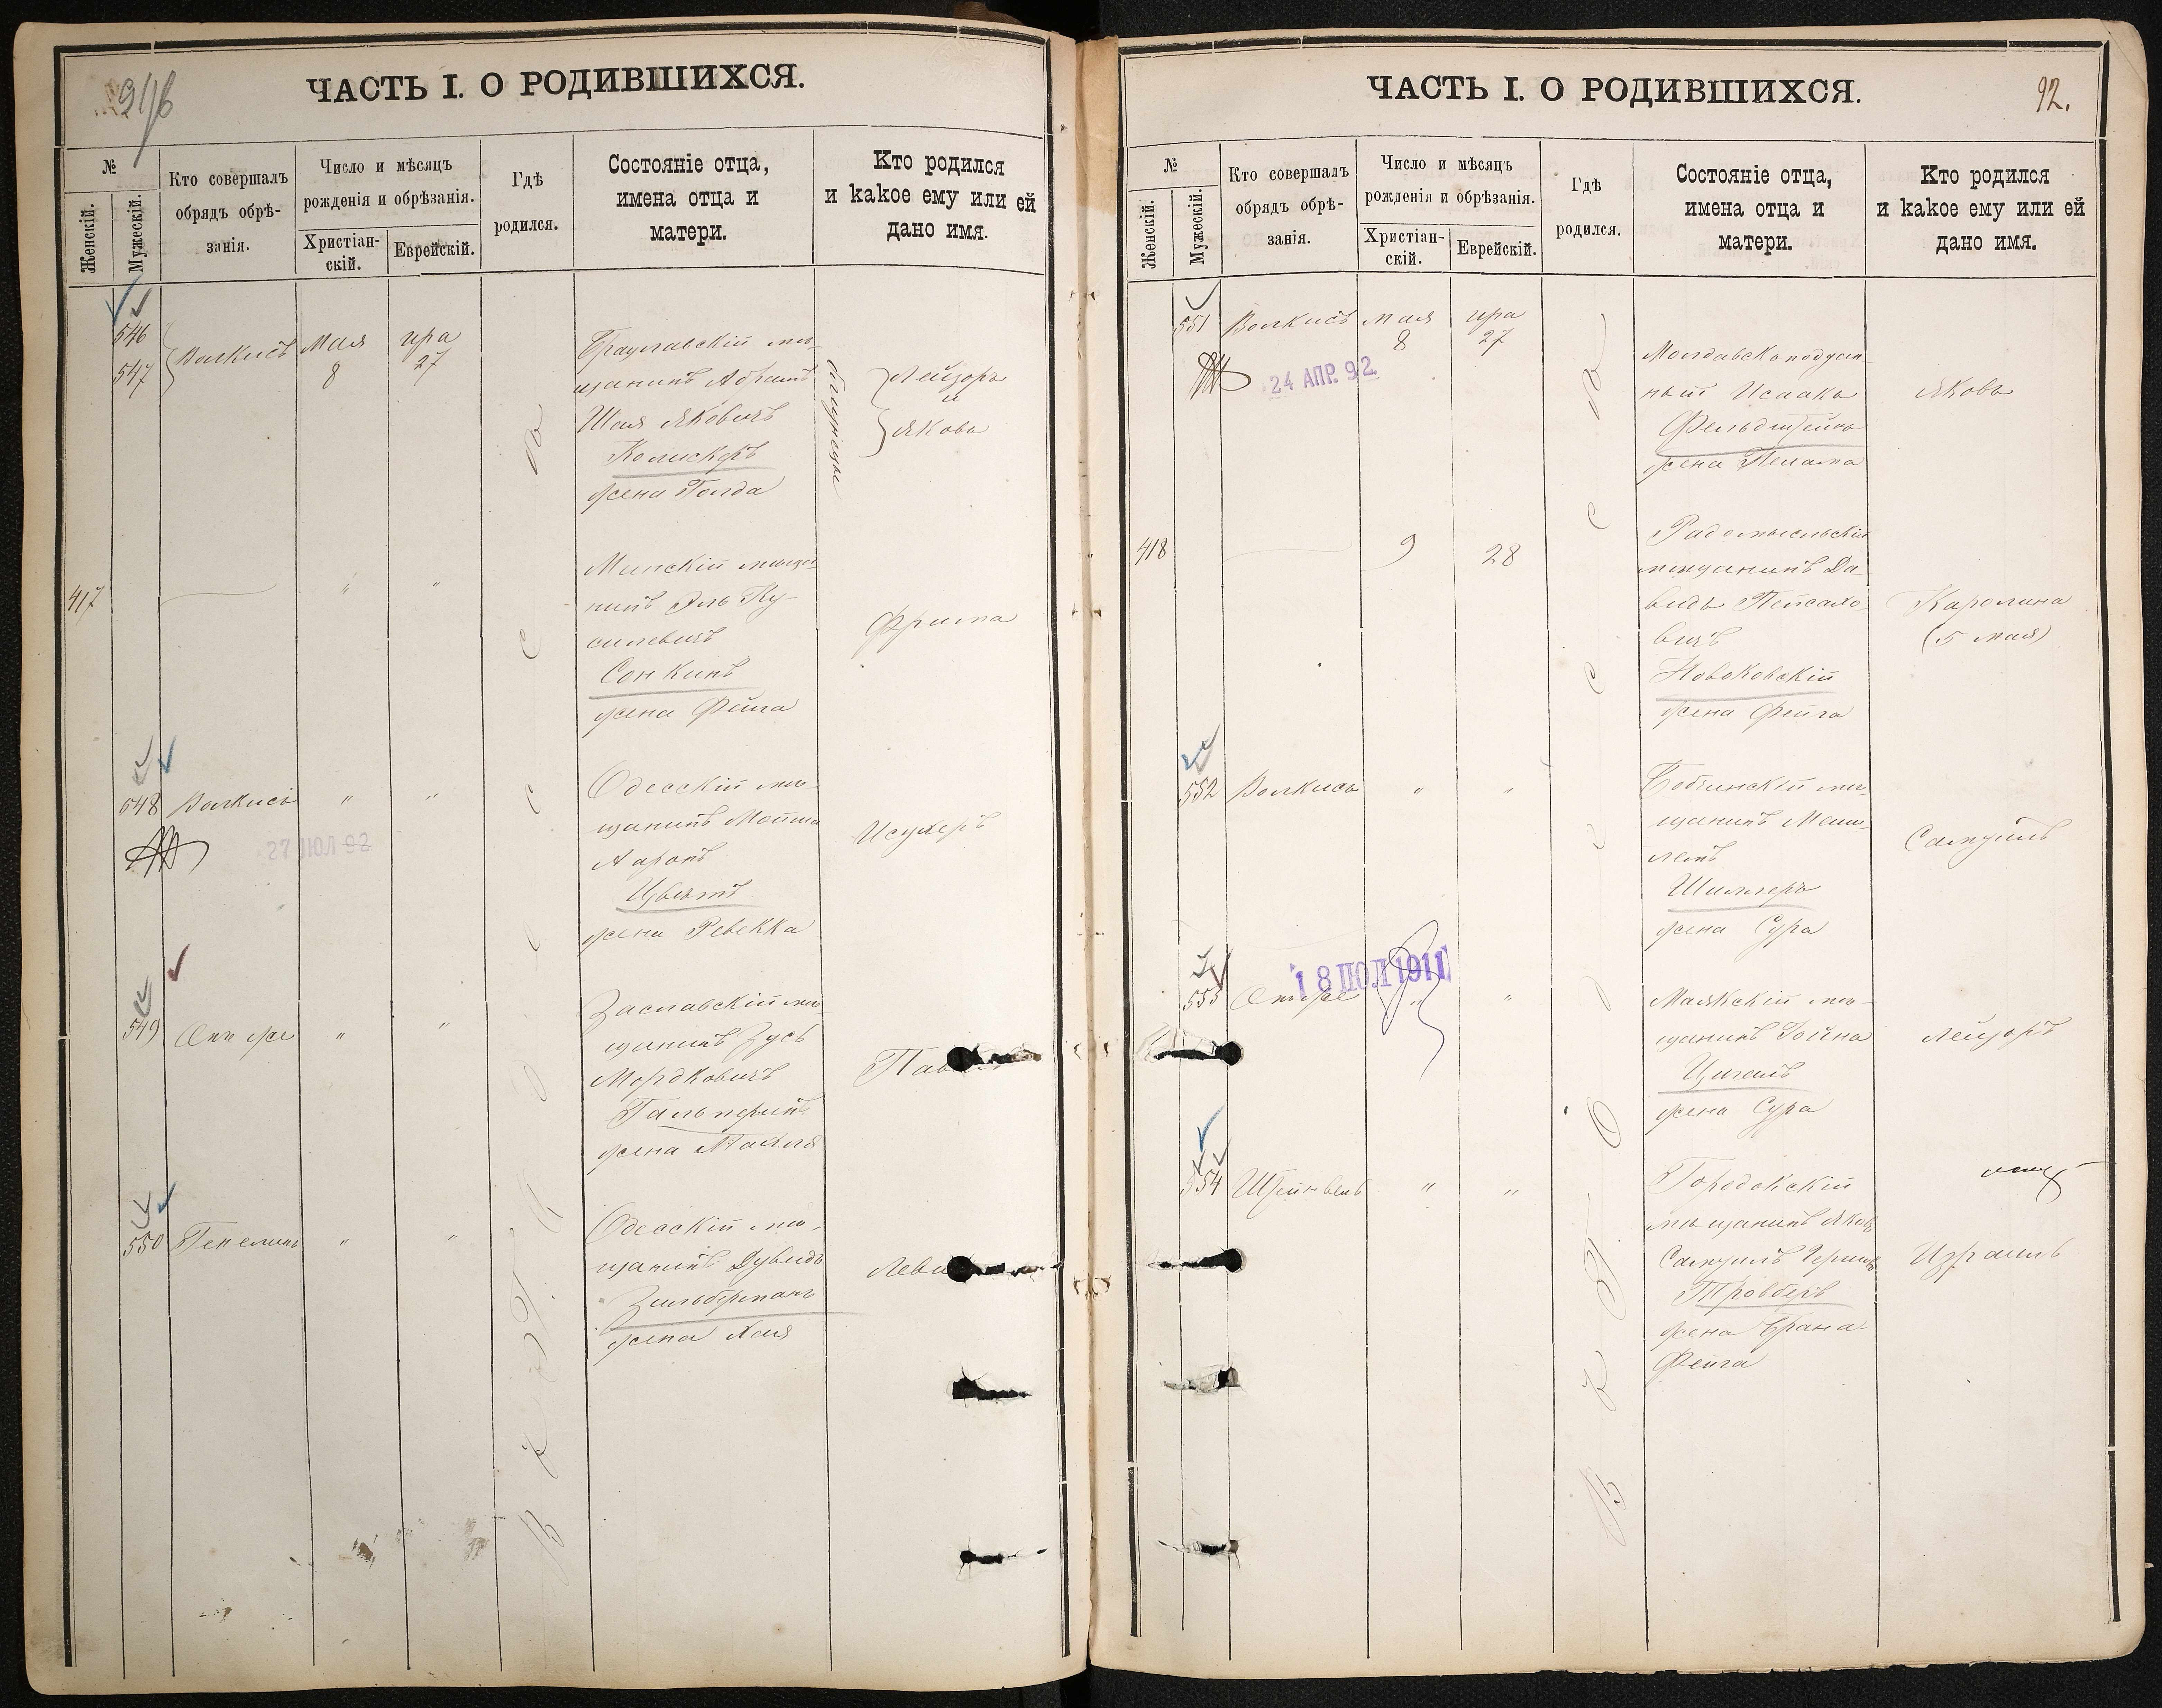 ЧАСТЬ I. О РОДИВШИХСЯ.
№
Женскій.
Мужескій.
Кто совершалъ
обрядъ обрѣ-
занія.
Число и мѣсяцъ
рожденія и обрѣзанія.
Христіан-
скій.
Еврейскій.
Гдѣ
родился.
Состояніе отца,
имена отца и
матери.
Кто родился
и какое ему или ей
дано имя.
546
547
Волкисъ
Мая
8
ира
27
Брацлавскій мѣ-
щанинъ Абрамъ
Шая Яковичъ
Колискеръ
жена Голда
близнецы
Лейзоръ
и
Яковъ
417
"
"
Минскій мѣща-
нинъ Эль Ку-
силевичъ
Сонкинъ
жена Фейга
Фрима
548
Волкисъ
"
"
27 ІЮЛ 92
Одесскій мѣ-
щанинъ Мошко
Ааронъ
Цвѣтъ
жена Ревекка
Исухеръ
549
"
"
Заславскій мѣ-
щанинъ Зусь
Мордковичъ
Гальперинъ
жена Махля
550
"
"
Одесскій мѣ-
щанинъ Дувидъ
Зильберманъ
жена Хая
Одесса
ЧАСТЬ I. О РОДИВШИХСЯ.
92.
№
Женскій.
Мужескій.
Кто совершалъ
обрядъ обрѣ-
занія.
Число и мѣсяцъ
рожденія и обрѣзанія.
Христіан-
скій.
Еврейскій.
Гдѣ
родился.
Состояніе отца,
имена отца и
матери.
Кто родился
и какое ему или ей
дано имя.
551
Волкисъ
Мая
8
ира
27
24 АПР. 92
Молдавско поддан
ный Исаакъ
Фельдштейнъ
жена Пелама
Яковъ
418
9
28
Радомысльскій
мѣщанинъ Да-
видъ Пейсахо
вичъ
Новоковскій
жена Фейга
Каролина
(5 мая)
552
Волкисъ
"
"
щанинъ
Шиллеръ
жена Сура
Самуилъ
553
18 ІЮЛ 1911
"
"
Маякскій мѣ-
щанинъ Хойна
Цигель
жена Сура
Лейзоръ
554
Штейнвель
"
"
Городокскій
мѣщанинъ Яковъ
Самуилъ Гершк
жена Брана
Фейга
Израиль
Одесса